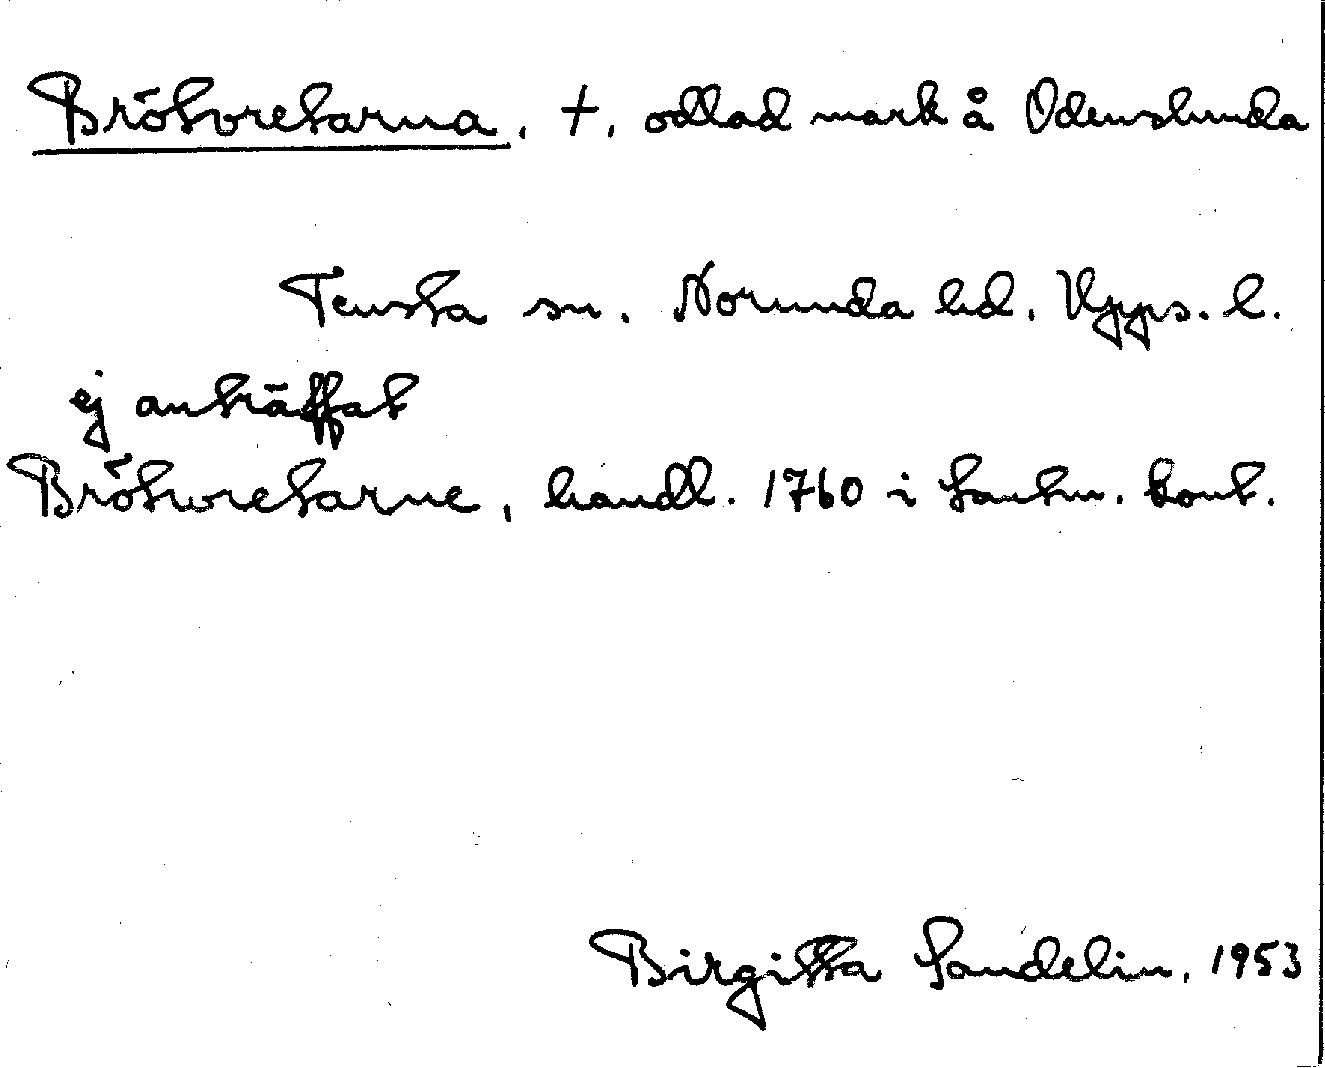 Brötvretarna, †, odlad mark å Odenslunda
Tensta sn. Norunda hd. Upps. l.
ej anträffat
Brötwretarne, handl. 1760 i lantm. kont.
Birgitta Sandelin, 1953